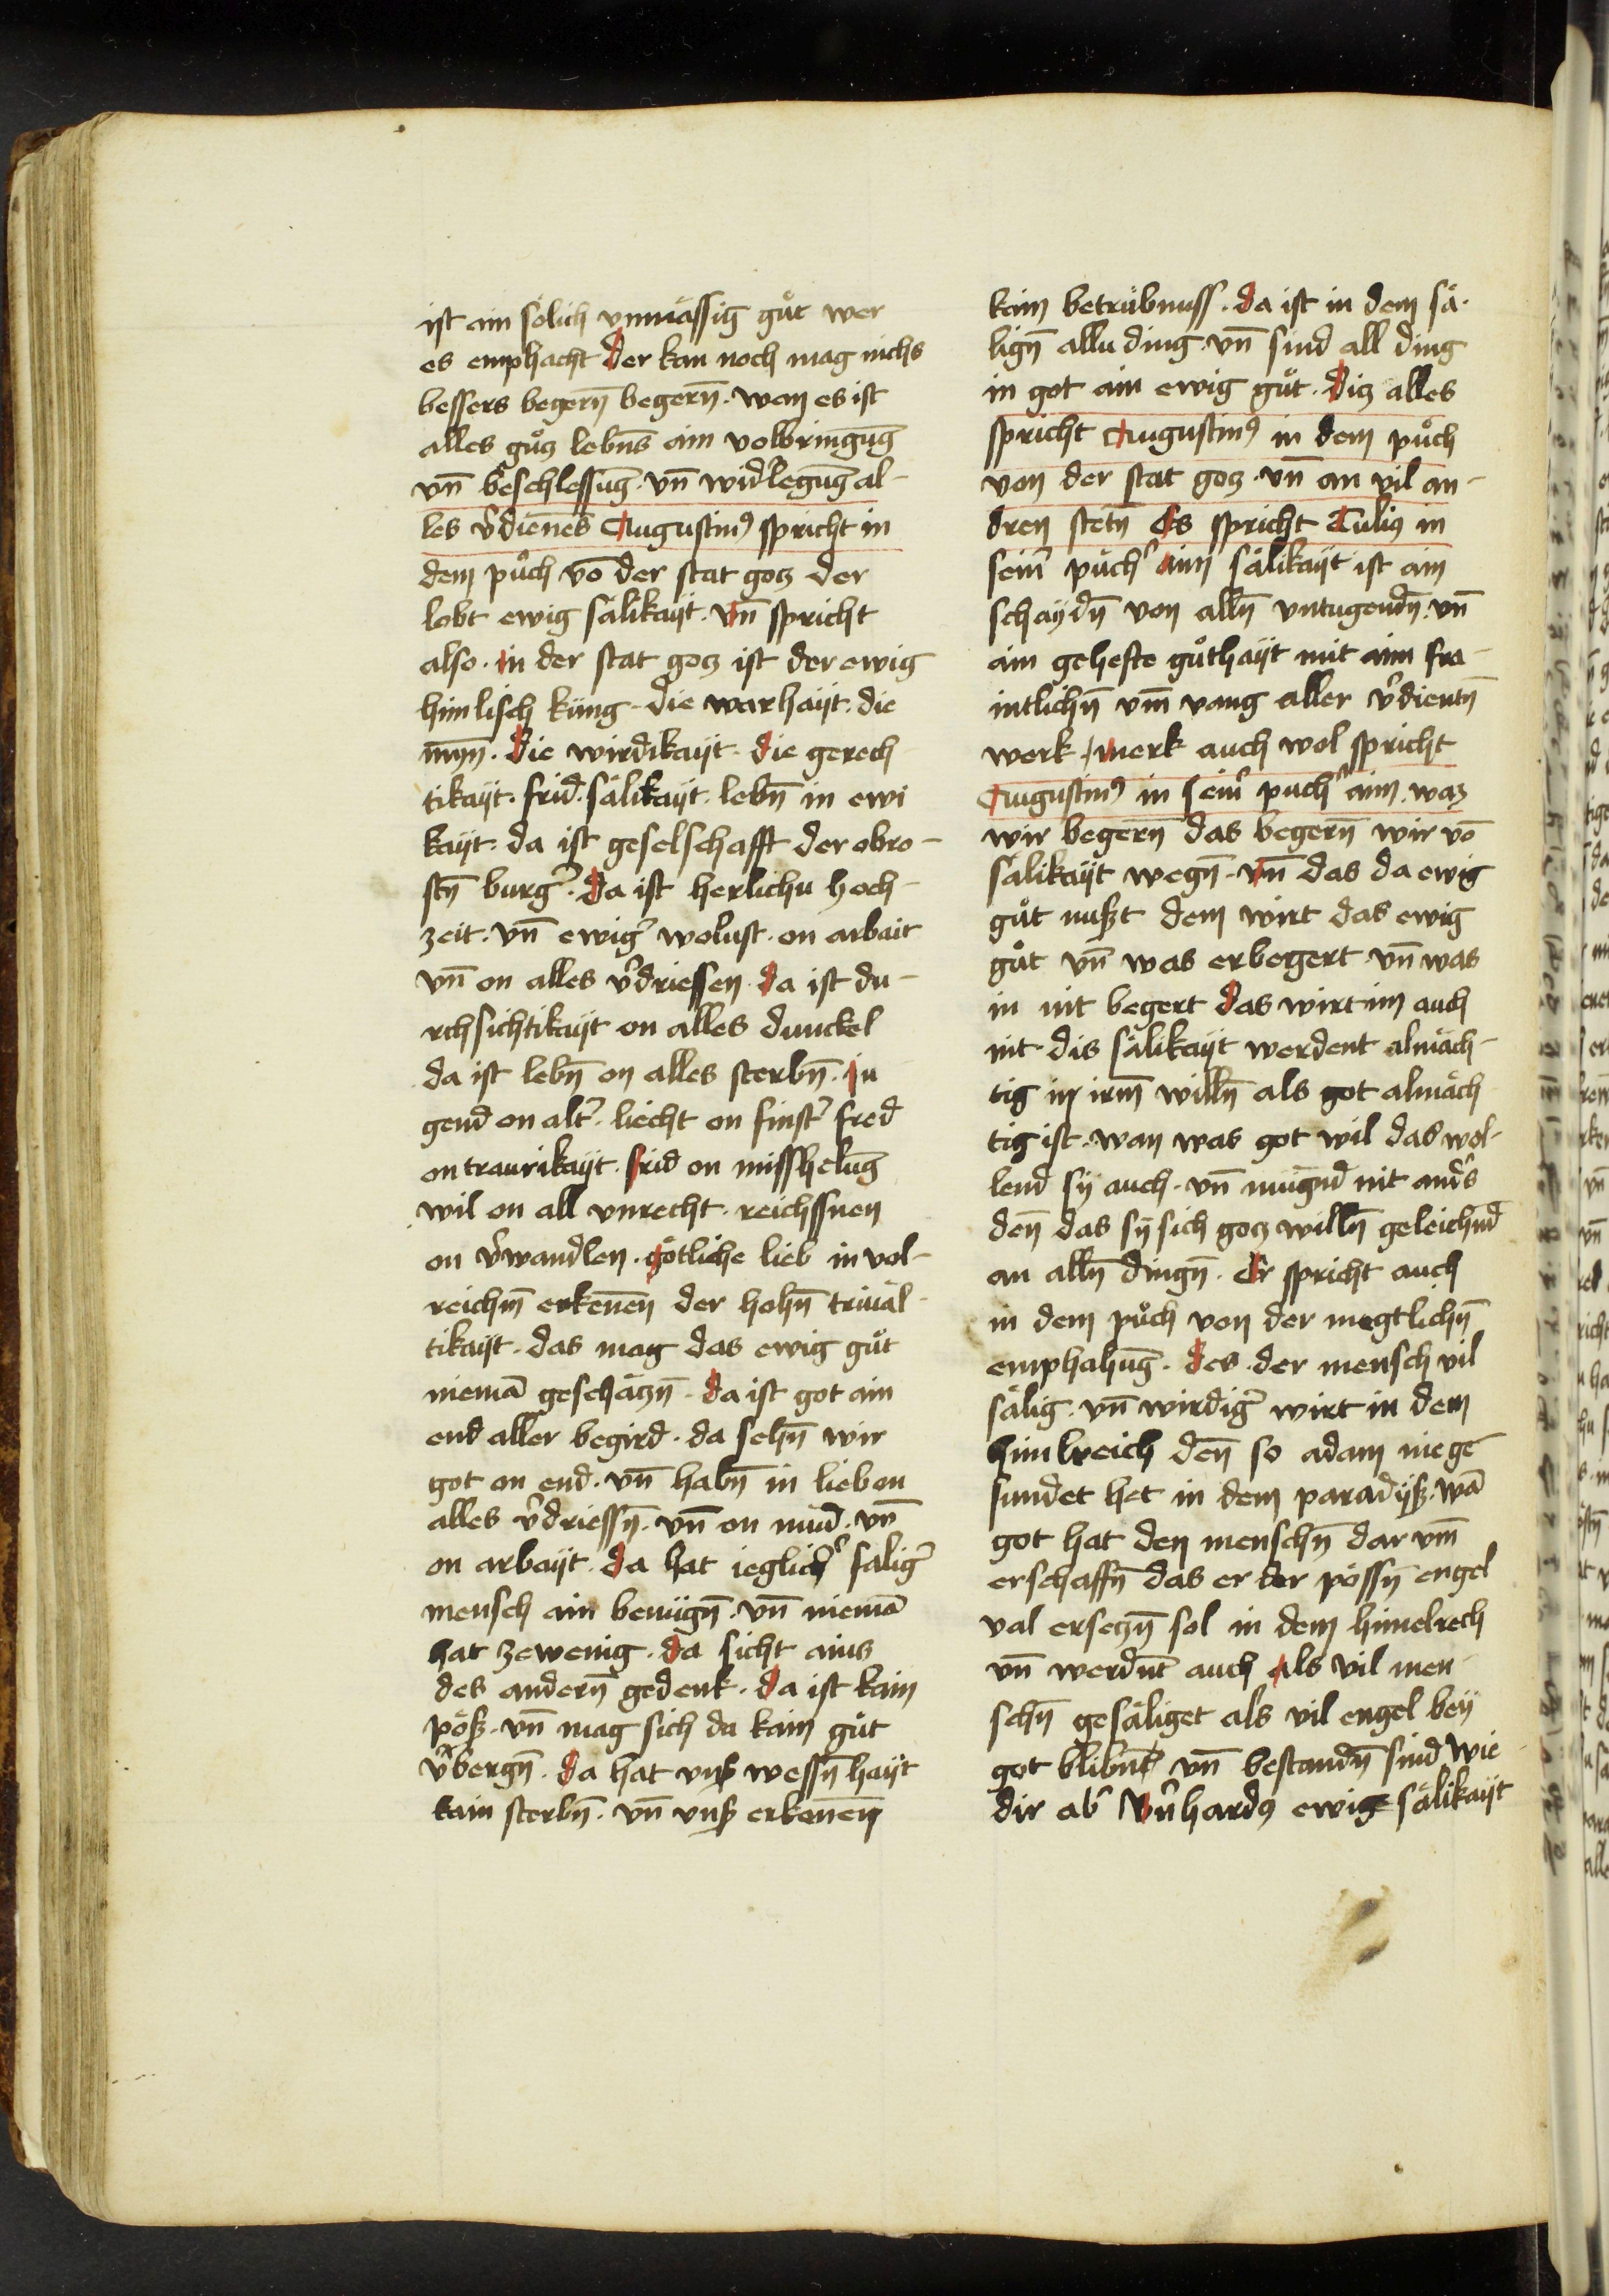 ist ain sölich vnmässig gůt wer
es emphacht der kan noch mag nichs
bessers begern̄ begern̄ · wan es ist
alles gůcz lebn̄s ain volbringūg
vn̄ beschlessūg · vn̄ widˀlegūg al-
les v̂dienēs Augustinꝰ spricht in
dem půch vō der stat gocz der
lobt ewig sälikayt · vn̄ spricht
also · in der stat gocz ist der ewig
himlisch küng · die warhayt · die
myn̄ · die wirdikayt · die gerech
tikayt · frid · sälikayt · lebn̄ in ewi
kayt · da ist geselschafft der obro-
stn̄ burgˀ · da ist herlichu hoch-
zeit · vn̄ ewigˀ wolust · on arbait
vn̄ on alles v̂driessen · da ist du-
rchsichtikayt on alles dunckel
da ist lebn̄ on alles sterbn̄ · iu
gend on altˀ · liecht on finstˀ fred
on traurikayt · frid on misshelūg
wil on all vnrecht · reichssnen
on v̂wandlen · götliche lieb in vol-
reichm̄ erkenēn der hohn̄ triuäl-
tikayt · das mag das ewig gůt
niemā geschäczn̄ · da ist got ain
end aller begird · da sehn̄ wir
got on end · vn̄ habn̄ in lieb on
alles v̂driessn̄ · vn̄ on müd · vn̄
on arbayt · da hat ieglichˀ säligˀ
mensch ain benügn̄ · vn̄ niemā
hat ze wenig · da sicht ains
des andern̄ gedenk · da ist kain
pöß · vn̄ mag sich da kain gůt
v̂bergn̄ · da hat vnß wessn̄ hayt
kain sterbn̄ · vn̄ vnß erkenēn
kain betrübnuss · da ist in dem sä-
lign̄ allu ding · vn̄ sind all ding
in got ain ewig gůt · diz alles
spricht Augustinꝰ in dem půch
von der stat gocz · vn̄ an vil an-
dren stetn̄ Es spricht Tuliꝰ in
seimˀ puchˀ aim sälikayt ist ain
schaydn̄ von alln̄ vntugendn̄ · vn̄
ain gehefte gůthayt mit aim fra-
intlichn̄ vm̄ vang aller v̂dientn̄
werk · merk auch wol spricht
Augustinꝰ in seimˀ puchˀ aim · waz
wir begern̄ das begern̄ wir vō
sälikayt wegn̄ · vn̄ das da ewig
gůt nußt dem wirt das ewig
gůt vn̄ was er begert · vn̄ was
in nit begert das wirt im auch
nit · dis sälikayt werdent almäch-
tig in irm̄ willn̄ als got almäch
tig ist · wan was got wil das wol-
lend sy auch · vn̄ mügnd nit andˀs
den̄ das sy sich gocz willn̄ geleichnd
an alln̄ dingn̄ · Er spricht auch
in dem půch von der megtlichn̄
emphahūg · des · der mensch vil
sälig · vn̄ wirdigˀ wirt in dem
himlreich den̄ so adam nie ge-
sundet het in dem paradyß · wā
got hat den menschn̄ dar vm̄
erschaffn̄ das er der pössn̄ engel
val erseczn̄ sol in dem himelrech
vn̄ werdnt auch als vil men-
schn̄ gesäliget als vil engel bey
got blibnt vn̄ bestandn̄ sind wie
dir abˀ v̂nhardꝰ ewig sälikayt